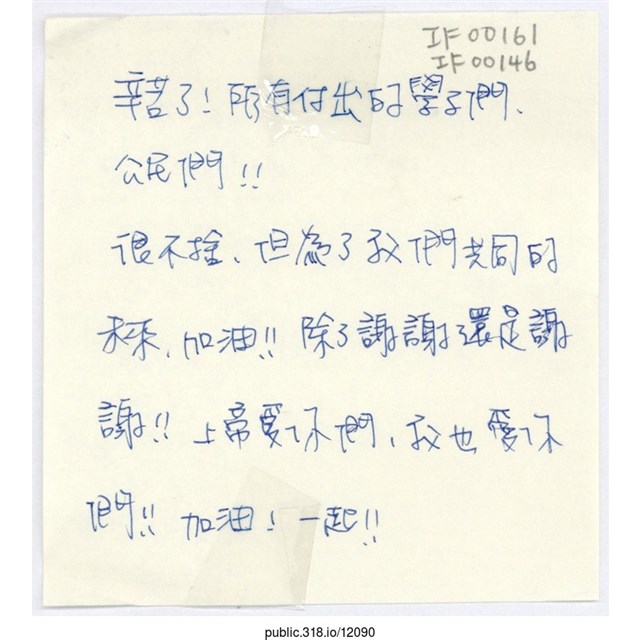 IF00161
IF00146
辛苦了！所有付出的學子們、
公民們！！
很不捨、但為了我們共同的
未來、加油！！除了謝謝還是謝
謝！！上帝愛你們、我也愛你
們！！加油！一起！！
public.318.io/12090